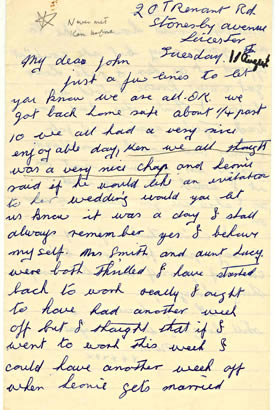 Never met
Ken before
20 Tremant Rd.
Stonesby avenue
Leicester
Tuesday. 11 August
My dear John
just a few lines to let
you know we are all O.K. we
got back home safe about 1/4 past
10 we all had a very nice
enjoyable day, Ken we all thought
was a very nice chap and Leonie
said if he would like an invitation
to her wedding would you let
us know it was a day I shall
always remember yes I behave
myself. Mrs Smith and aunt Lucy.
were both thrilled I have started
back to work really I ought
to have had another week
off but I thought that if I
went to work this week I
could have another week off
when Leonie gets married